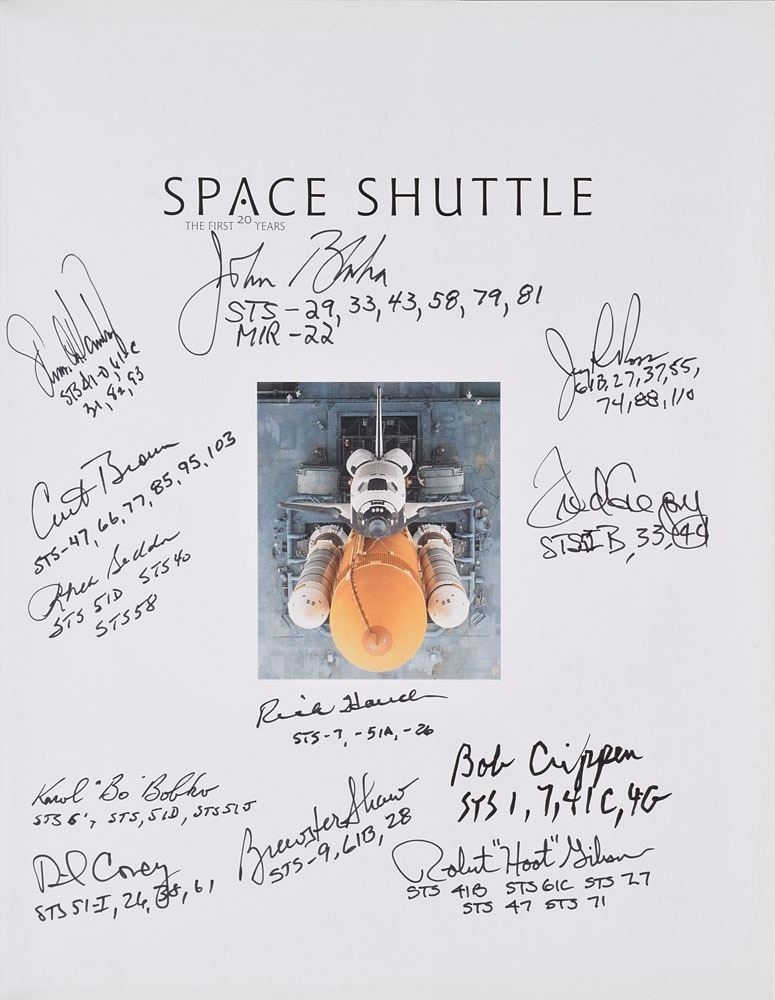 SPACE SHUTTLE
THE FIRST 20 YEARS
John Blaha
STS-29, 33, 43, 58, 79, 81
MIR-22
STS 41-D, 61-C
31, 82, 93
61B, 27, 37, 55,
74, 88, 110
Curt Brown
STS-47, 66, 77, 85, 95, 103
Fred Gregory
33, 44
Rhea Seddon
STS 51D STS 40
STS 58
Rick Hauck
STS-7, -51A, -26
Karol "Bo" Bobko
STS 6, STS, 51D, STS 51J
Brewster Shaw
STS-9, 61B, 28
Bob Crippen
STS 1, 7, 41C, 41G
Covey
STS 51-I, 26, 38, 61
Robert "Hoot" Gibson
STS 41B STS 61C STS 27
STS 47 STS 71